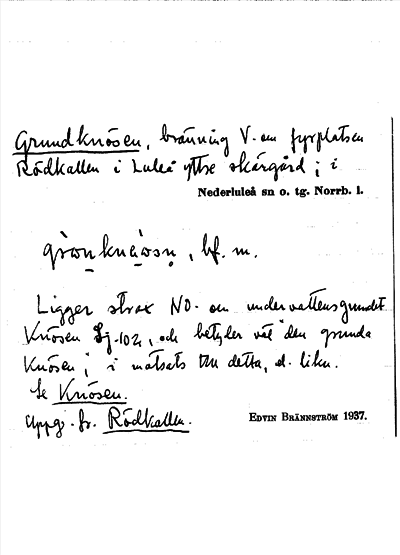 Grundknösen, bränning V. om fyrplatsen
Rödkallen i Luleå yttre skärgård; i
Nederluleå sn o. tg. Norrb. l.
bf. m.
Ligger strax NO. om undervattensgrundet
Knösen, och betyder väl "den grunda
Knösen", i motsats till detta, d. likn.
Se Knösen.
Uppg. fr. Rödkallen.
EDVIN BRÄNNSTRÖM 1937.